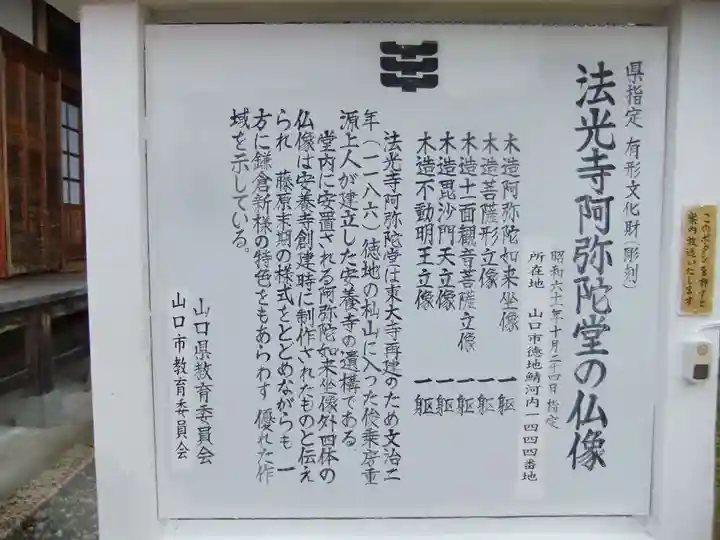 県指定 有形文化財(彫刻)
法光寺阿弥陀堂の仏像
昭和六十一年十月二十四日指定
所在地 山口市徳地鯖河内一四四四番地
木造阿弥陀如来坐像 一躯
木造菩薩形立像 一躯
木造十一面観音菩薩立像 一躯
木造毘沙門天立像 一躯
木造不動明王立像 一躯
法光寺阿弥陀堂は東大寺再建のため文治二
年(一一八六)徳地の杣山に入った俊乗房重
源上人が建立した安養寺の遺構である。
堂内に安置される阿弥陀如来坐像外四体の
仏像は安養寺創建時に制作されたものと伝え
られ 藤原末期の様式をとどめながらも 一
方に鎌倉新様の特色をもあらわす 優れた作
域を示している。
山口県教育委員会
山口市教育委員会
このボタンを押すと
案内放送いたします